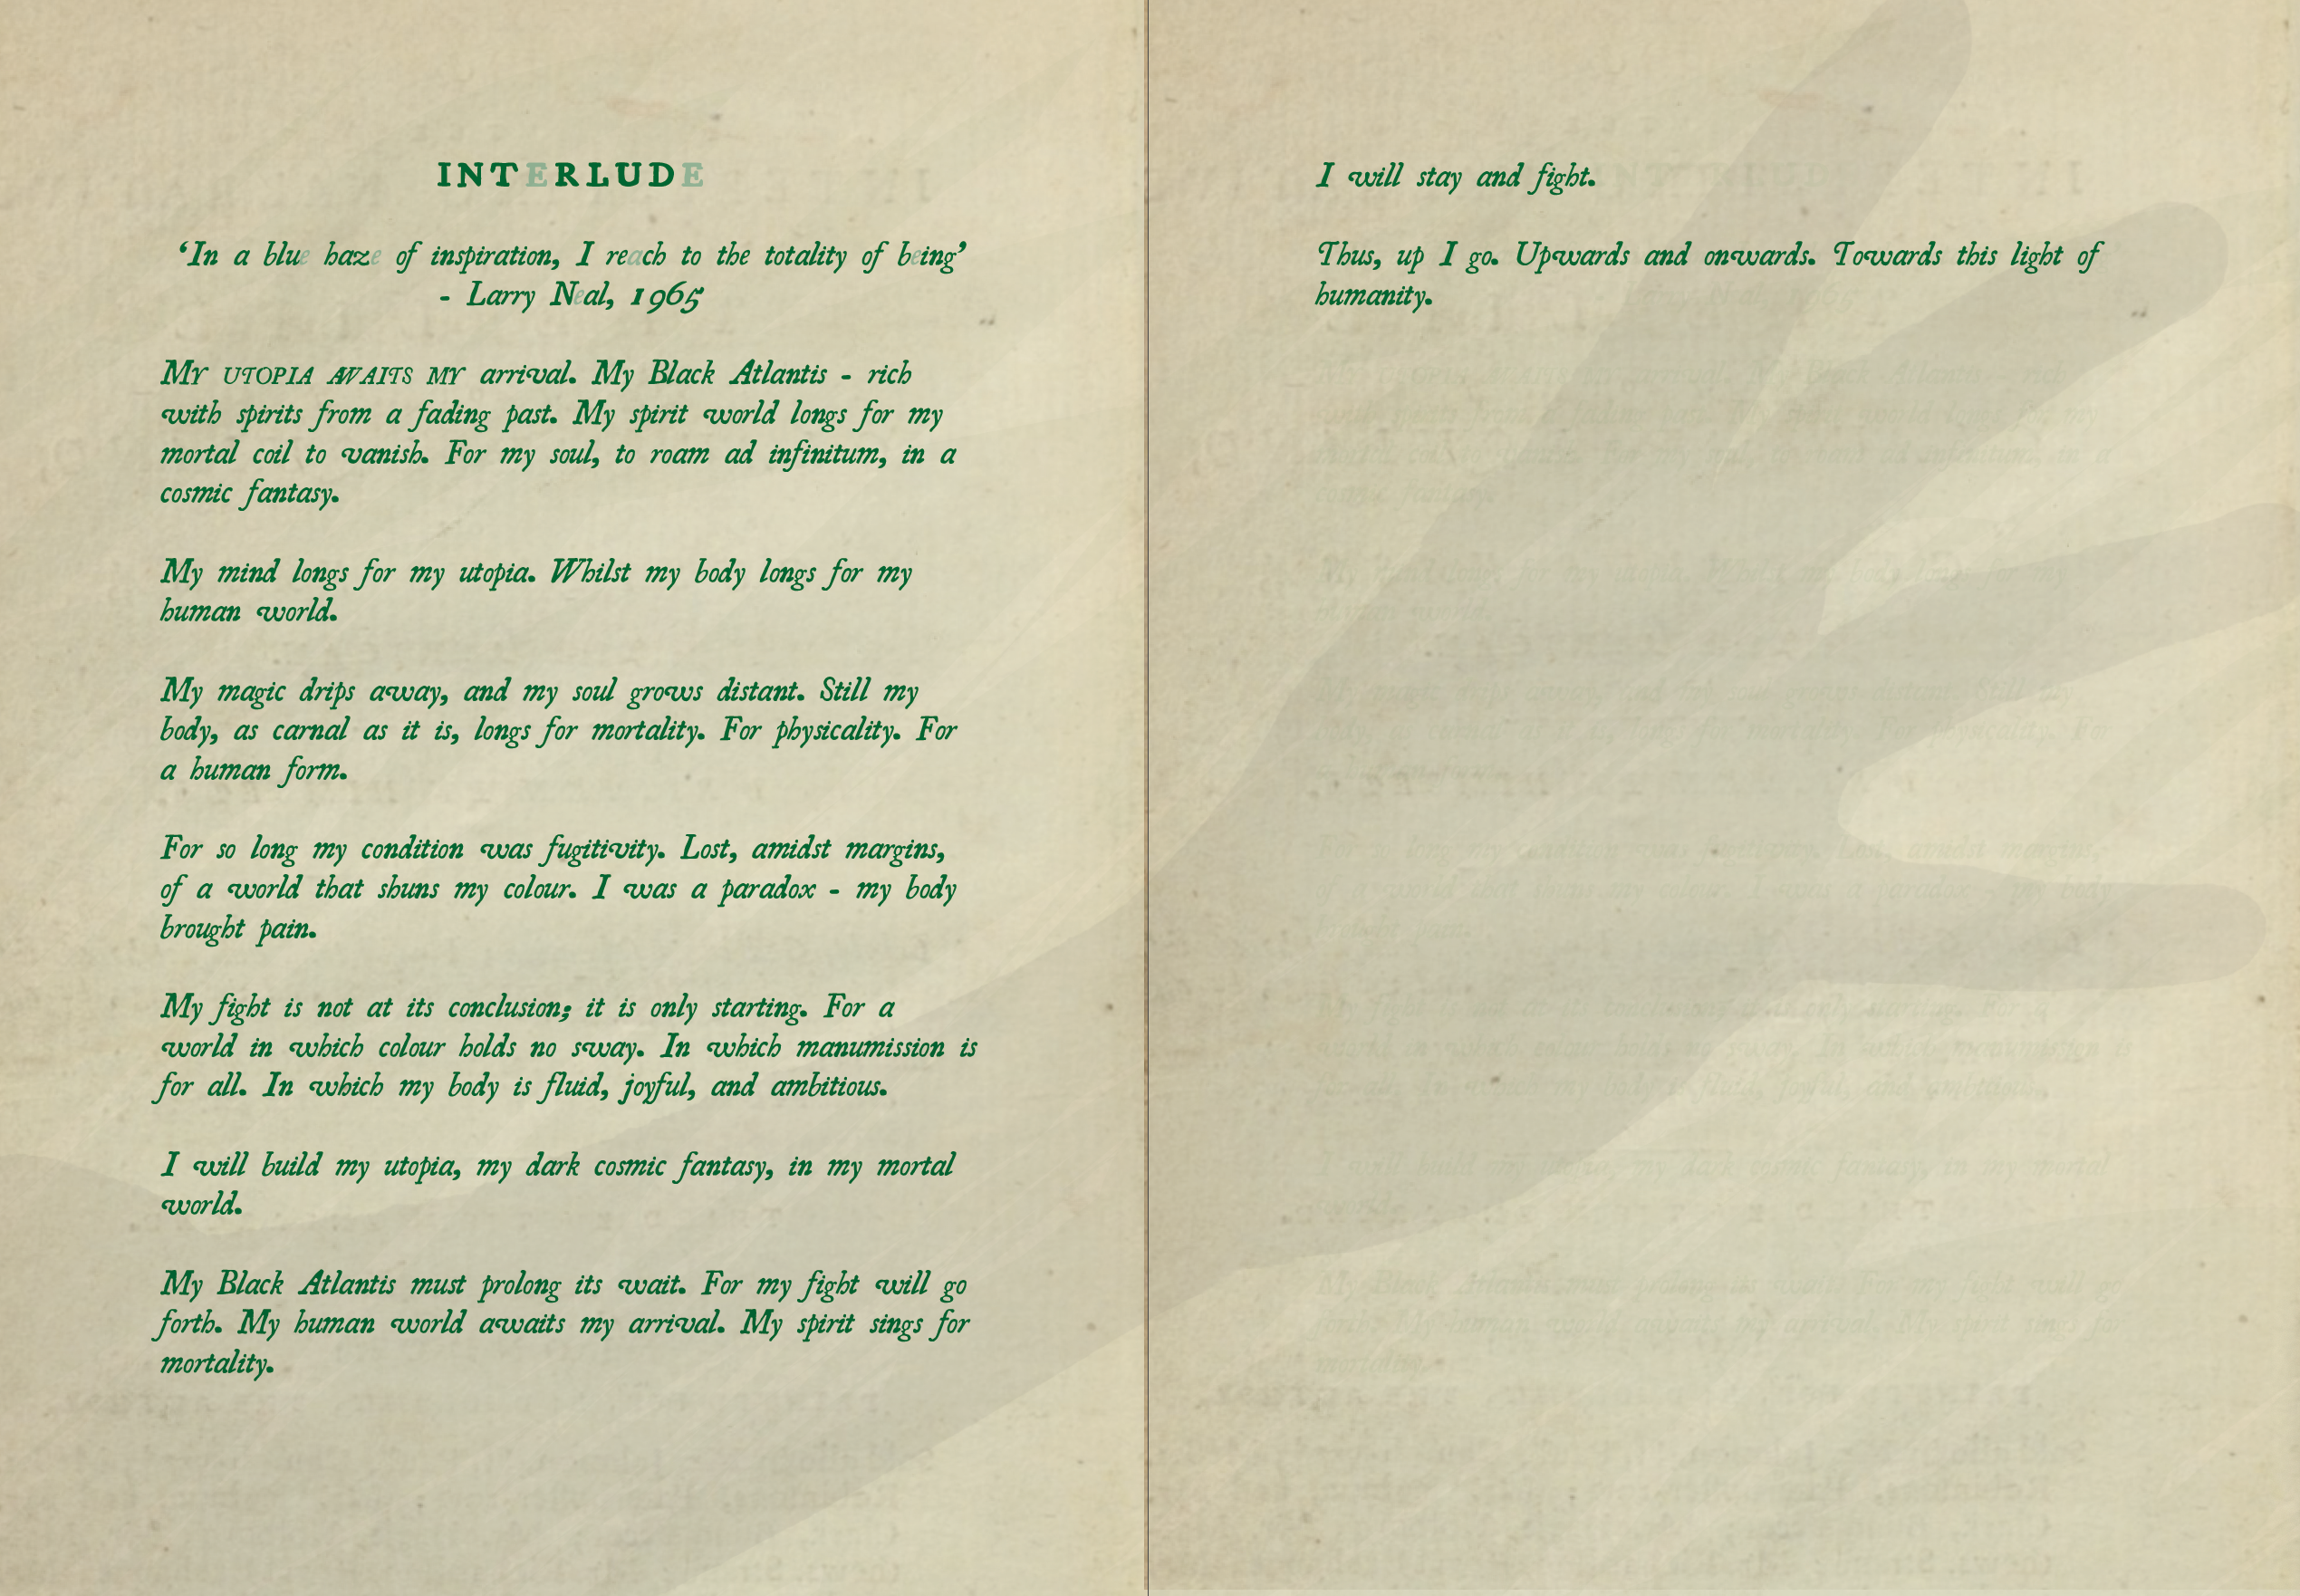 INTERLUDE
‘In a blue haze of inspiration, I reach to the totality of being’
- Larry Neal, 1965
MY UTOPIA AWAITS MY arrival. My Black Atlantis - rich
with spirits from a fading past. My spirit world longs for my
mortal coil to vanish. For my soul, to roam ad infinitum, in a
cosmic fantasy.
My mind longs for my utopia. Whilst my body longs for my
human world.
My magic drips away, and my soul grows distant. Still my
body, as carnal as it is, longs for mortality. For physicality. For
a human form.
For so long my condition was fugitivity. Lost, amidst margins,
of a world that shuns my colour. I was a paradox - my body
brought pain.
My fight is not at its conclusion; it is only starting. For a
world in which colour holds no sway. In which manumission is
for all. In which my body is fluid, joyful, and ambitious.
I will build my utopia, my dark cosmic fantasy, in my mortal
world.
My Black Atlantis must prolong its wait. For my fight will go
forth. My human world awaits my arrival. My spirit sings for
mortality.
I will stay and fight.
Thus, up I go. Upwards and onwards. Towards this light of
humanity.